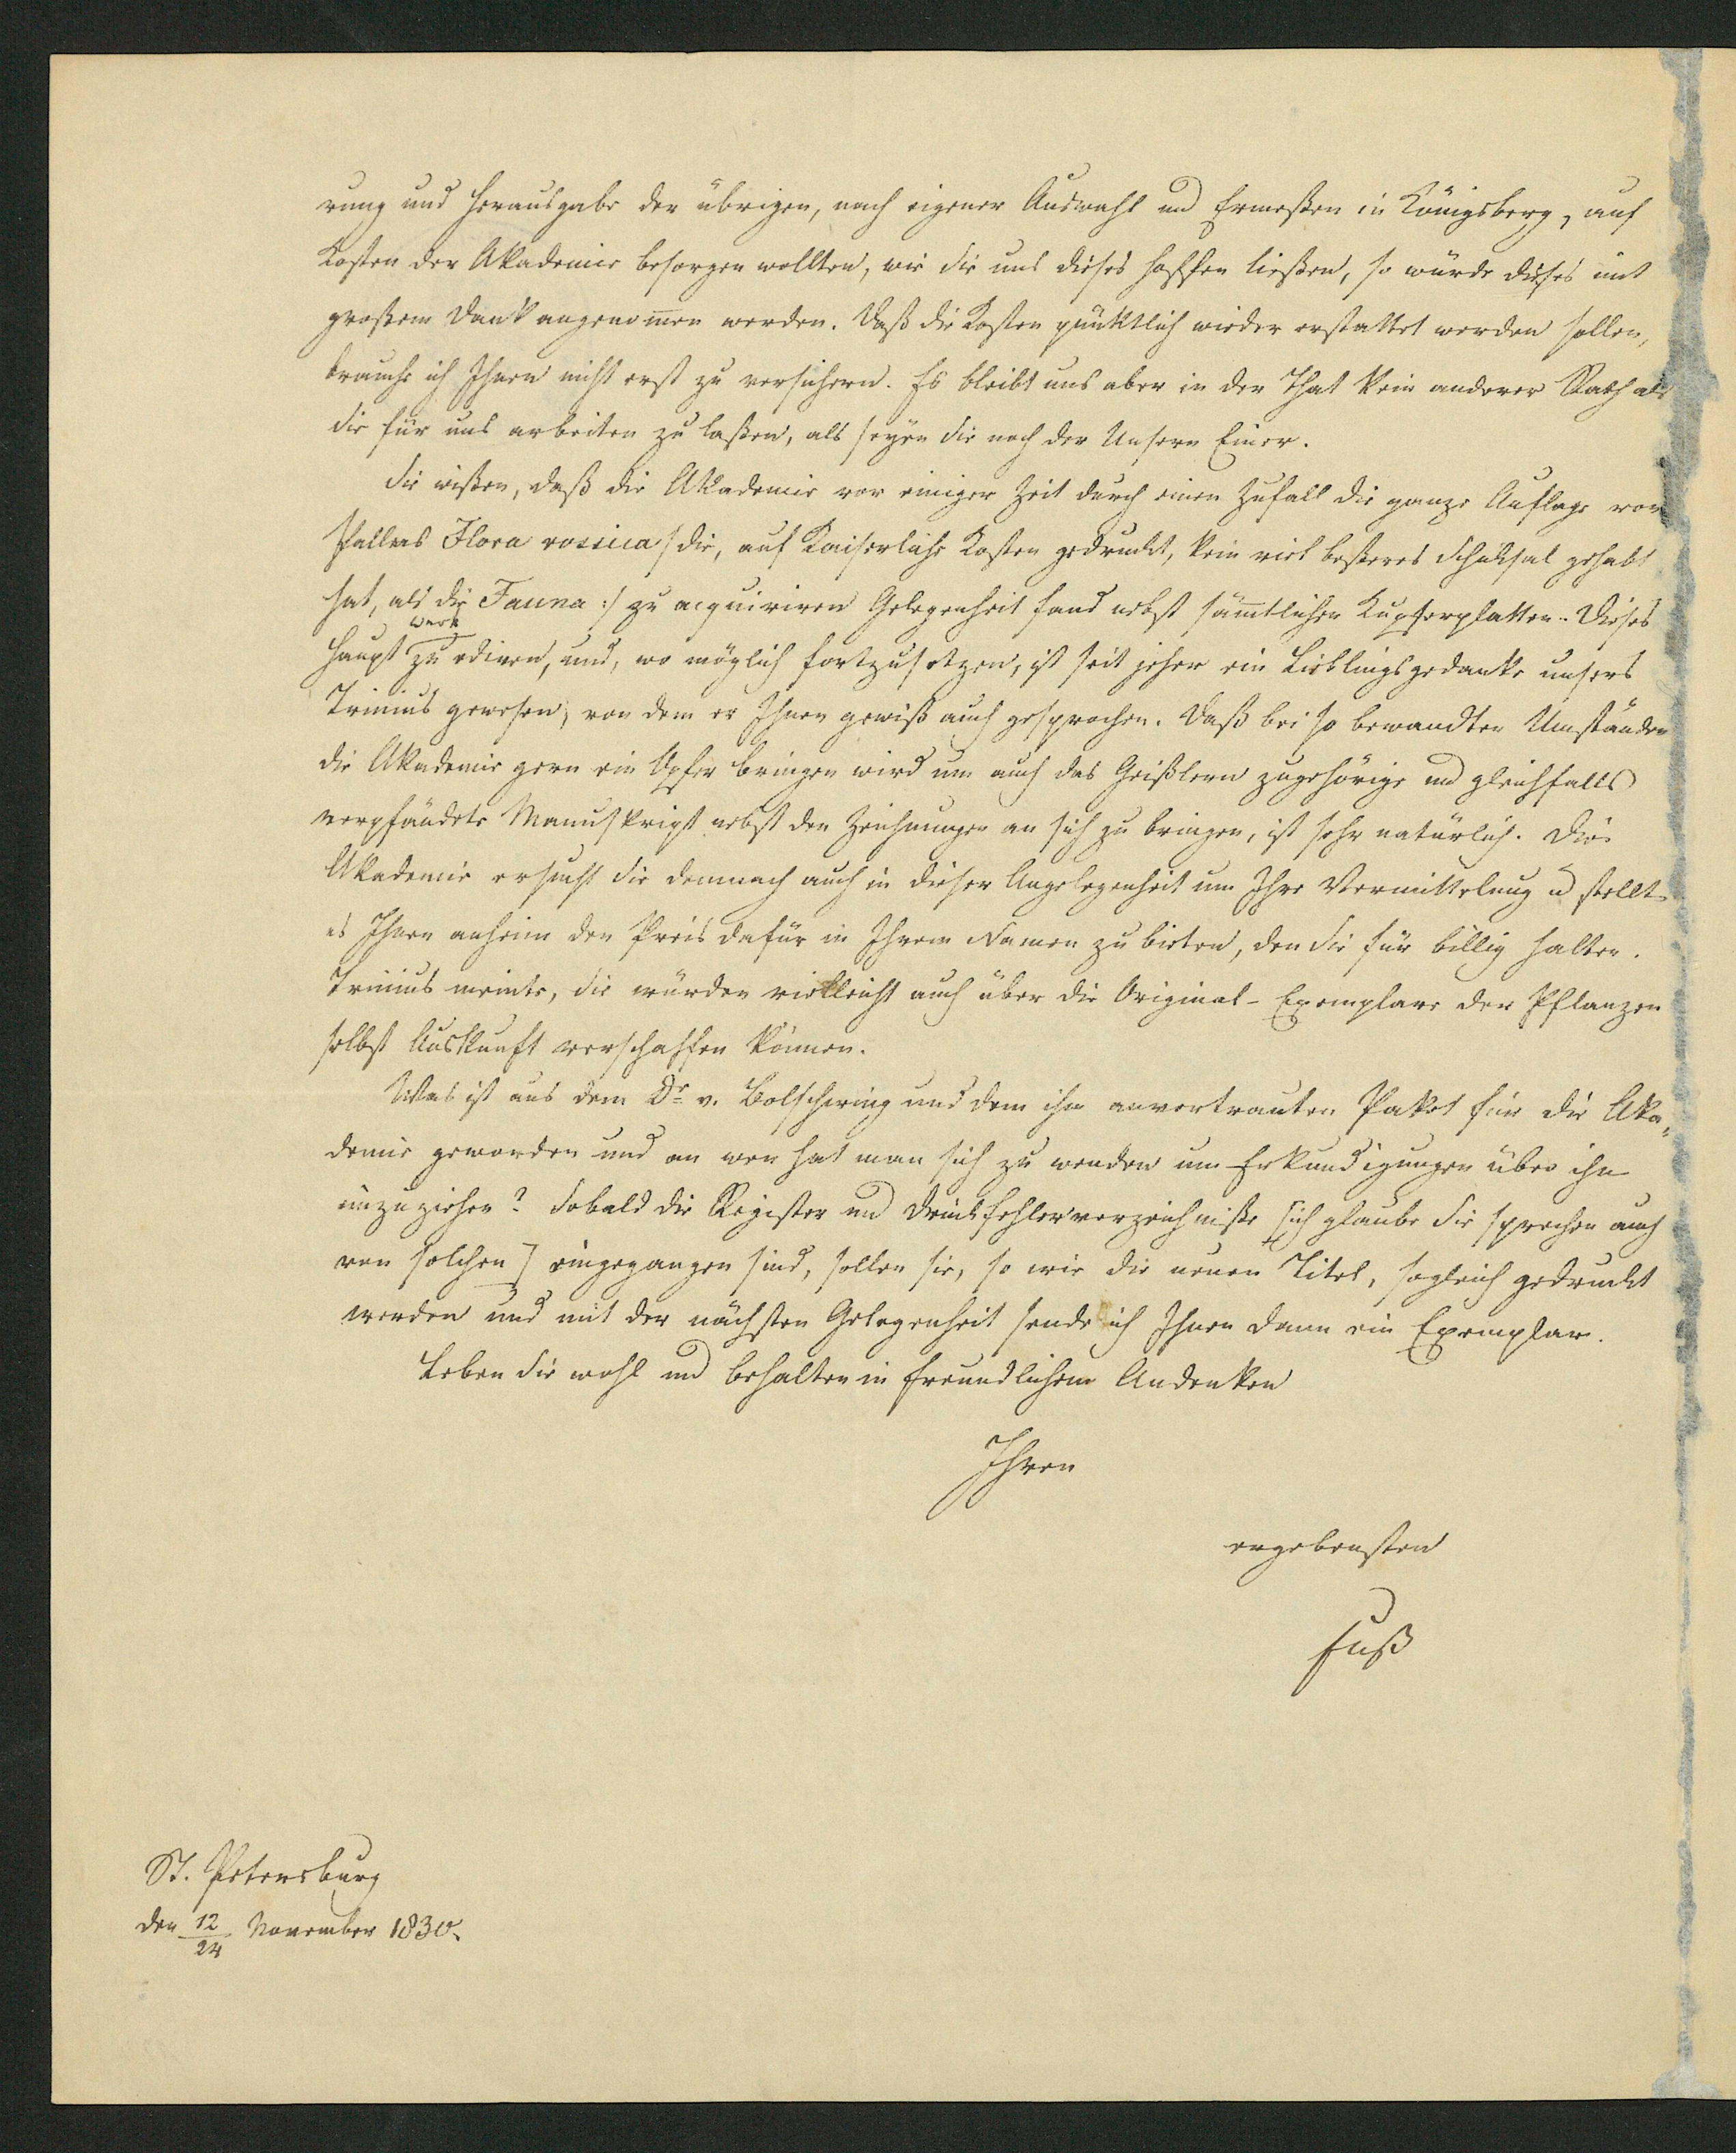 rung und Herausgabe der übrigen, nach eigener Auswahl und Ermeßen in Königsberg, auf
Kosten der Akademie besorgen wollten, wie Sie uns dieses hoffen ließen, so würde dieses mit
großem Dank angenom̄en werden. Daß die Kosten pünktlich wieder erstattet werden sollen,
brauche ich Ihnen nicht erst zu versichern. Es bleibt uns aber in der That kein anderer Rath als
Sie für uns arbeiten zu laßen, als seyen Sie noch der Unsern Einer.
Sie wißen, daß die Akademie vor einiger Zeit durch einen Zufall die ganze Auflage von
Pallas Flora rossica /: die, auf Kaiserliche Kosten gedruckt, kein viel beßeres Schiksal gehabt
hat, als die Fauna :/ zu acquiriren Gelegenheit fand nebst säm̄tlichen Kupferplatten. Dieses
Hauptwerk zu ediren, und, wo möglich fortzusetzen, ist seit jeher ein Lieblingsgedanke unsers
Trinius gewesen, von dem er Ihnen gewiß auch gesprochen. Daß bei so bewandten Umständen
die Akademie gern ein Opfer bringen wird um auch das Geißlern zugehörige und gleichfalls
verpfändete Manuskript nebst den Zeichnungen an sich zu bringen, ist sehr natürlich. Die
Akademie ersucht Sie demnach auch in dieser Angelegenheit um Ihre Vermittelung u stellt
es Ihnen anheim den Preis dafür in Ihrem Namen zu bieten, den Sie für billig halten.
Trinius meinte, Sie würden vielleicht auch über die Original-Exemplare der Pflanzen
selbst Auskunft verschaffen können.
Was ist aus dem Dr v. Bolschwing und dem ihm anvertrauten Paket für die Aka-
demie geworden und an wen hat man sich zu wenden um Erkundigungen über ihn
einzuziehen? Sobald die Register und Druckfehlerverzeichniße [ich glaube Sie sprechen auch
von solchen] eingegangen sind, sollen sie, so wie die neuen Titel, sogleich gedruckt
werden und mit der nächsten Gelegenheit sende ich Ihnen dann ein Exemplar.
Leben Sie wohl und behalten in freundlichem Andenken
Ihren
ergebensten
Fuß
St. Petersburg
den 12/24 November 1830.